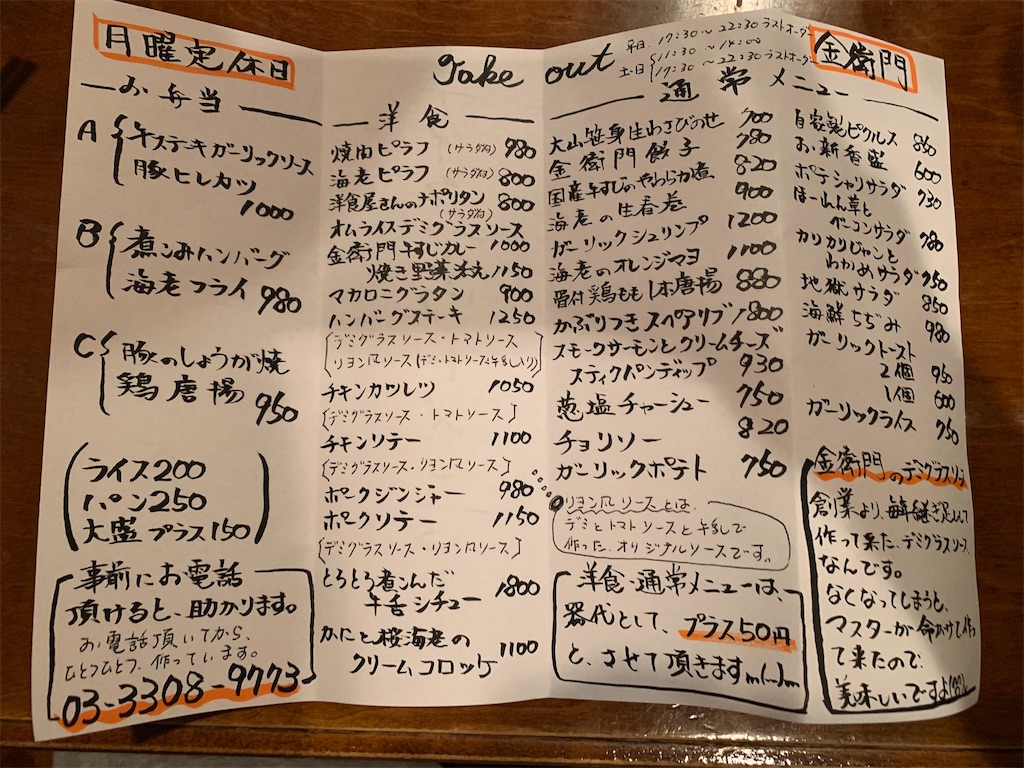 月曜定休日
Take out
平日 17:30〜22:30ラストオーダー
土日{11:30〜14:00
17:30〜22:30ラストオーダー
金衛門
お弁当
A 牛ステーキガーリックソース
豚ヒレカツ
1000
B 煮こみハンバーグ
海老フライ 980
C 豚のしょうが焼
鶏唐揚
950
(ライス200
パン250
大盛プラス150)
事前にお電話
頂けると、助かります。
お電話頂いてから、
ひとつひとつ、作っています。
03-3308-9773
洋食
焼肉ピラフ (サラダ付) 980
海老ピラフ (サラダ付) 800
洋食屋さんのナポリタン 800
(サラダ付)
オムライスデミグラスソース
1000
金衛門牛すじカレー
焼き野菜添え 1150
マカロニグラタン 900
ハンバーグステーキ 1250
[デミグラスソース・トマトソース
リヨン風ソース(デミ・トマトソースと牛乳入り)]
チキンカツレツ 1050
[デミグラスソース・トマトソース]
チキンソテー 1100
[デミグラスソース・リヨン風ソース]
ポークジンジャー 980
ポークソテー 1150
[デミグラスソース・リヨン風ソース]
とろとろ煮こんだ
牛舌シチュー 1800
かにと桜海老の
クリームコロッケ 1100
通常メニュー
大山笹身生わさびのせ 700
金衛門餃子 780
国産牛すじのやわらか煮 820
海老の生春巻 900
ガーリックシュリンプ 1200
海老のオレンジマヨ 1100
骨付鶏もも1本唐揚 880
かぶりつきスペアリブ 1800
スモークサーモンとクリームチーズ
スティクパンディップ 930
葱塩チャーシュー 750
チョリソー 820
ガーリックポテト 750
リヨン風ソースとは、
デミとトマトソースと牛乳で
作った、オリジナルソースです。
洋食・通常メニューは、
器代として、プラス50円
と、させて頂きますm(_)m
自家製ピクルス 860
お新香盛 600
ポテシャリサラダ 730
ほーれん草と
ベーコンサラダ 780
カリカリじゃこと
わかめサラダ 750
地獄サラダ 850
海鮮ちぢみ 980
ガーリックトースト
2個 950
1個 600
ガーリックライス 750
金衛門のデミグラスソース
創業より、毎年継ぎ足して
作って来た、デミグラスソース
なんです。
なくなってしまうと、
マスターが命がけで作っ
て来たので、
美味しいですよ